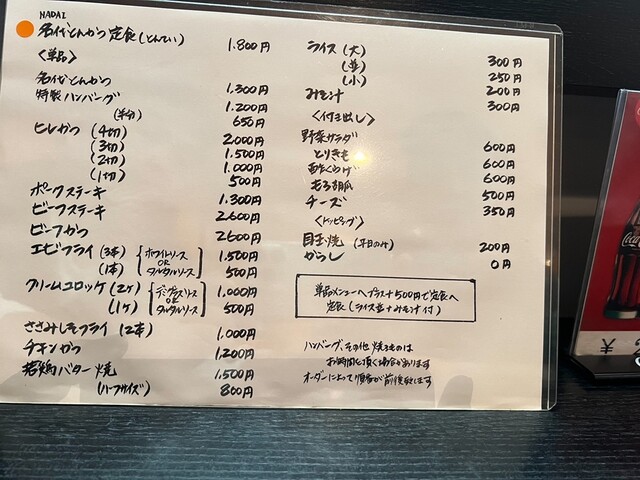 NADAI
名代とんかつ定食(とんてい) 1.800円
〈単品〉
名代とんかつ 1.300円
特製ハンバーグ 1.200円
(半分) 650円
ヒレかつ (4切) 2.000円
(3切) 1.500円
(2切) 1.000円
(1切) 500円
ポークステーキ 1.300円
ビーフステーキ 2600円
ビーフかつ 2600円
エビフライ (3本) 1.500円
(1本) 500円
ホワイトソース
OR
タルタルソース
クリームコロッケ (2ヶ) 1.000円
(1ヶ) 500円
デミグラスソース
OR
タルタルソース
ささみしそフライ (2本) 1.000円
チキンかつ 1.200円
若鶏バター焼 1.500円
(ハーフサイズ) 800円
ライス (大) 300円
(並) 250円
(小) 200円
みそ汁 300円
〈付き出し〉
野菜サラダ 600円
とりきも 600円
酢くらげ 600円
もろ胡瓜 500円
チーズ 350円
〈トッピング〉
目玉焼 (平日のみ) 200円
からし 0円
単品メニューへプラス+500円で定食へ
定食(ライス並+みそ汁付)
ハンバーグ、その他焼きものは
お時間を頂く場合があります
オーダーによって順番が前後致します
¥